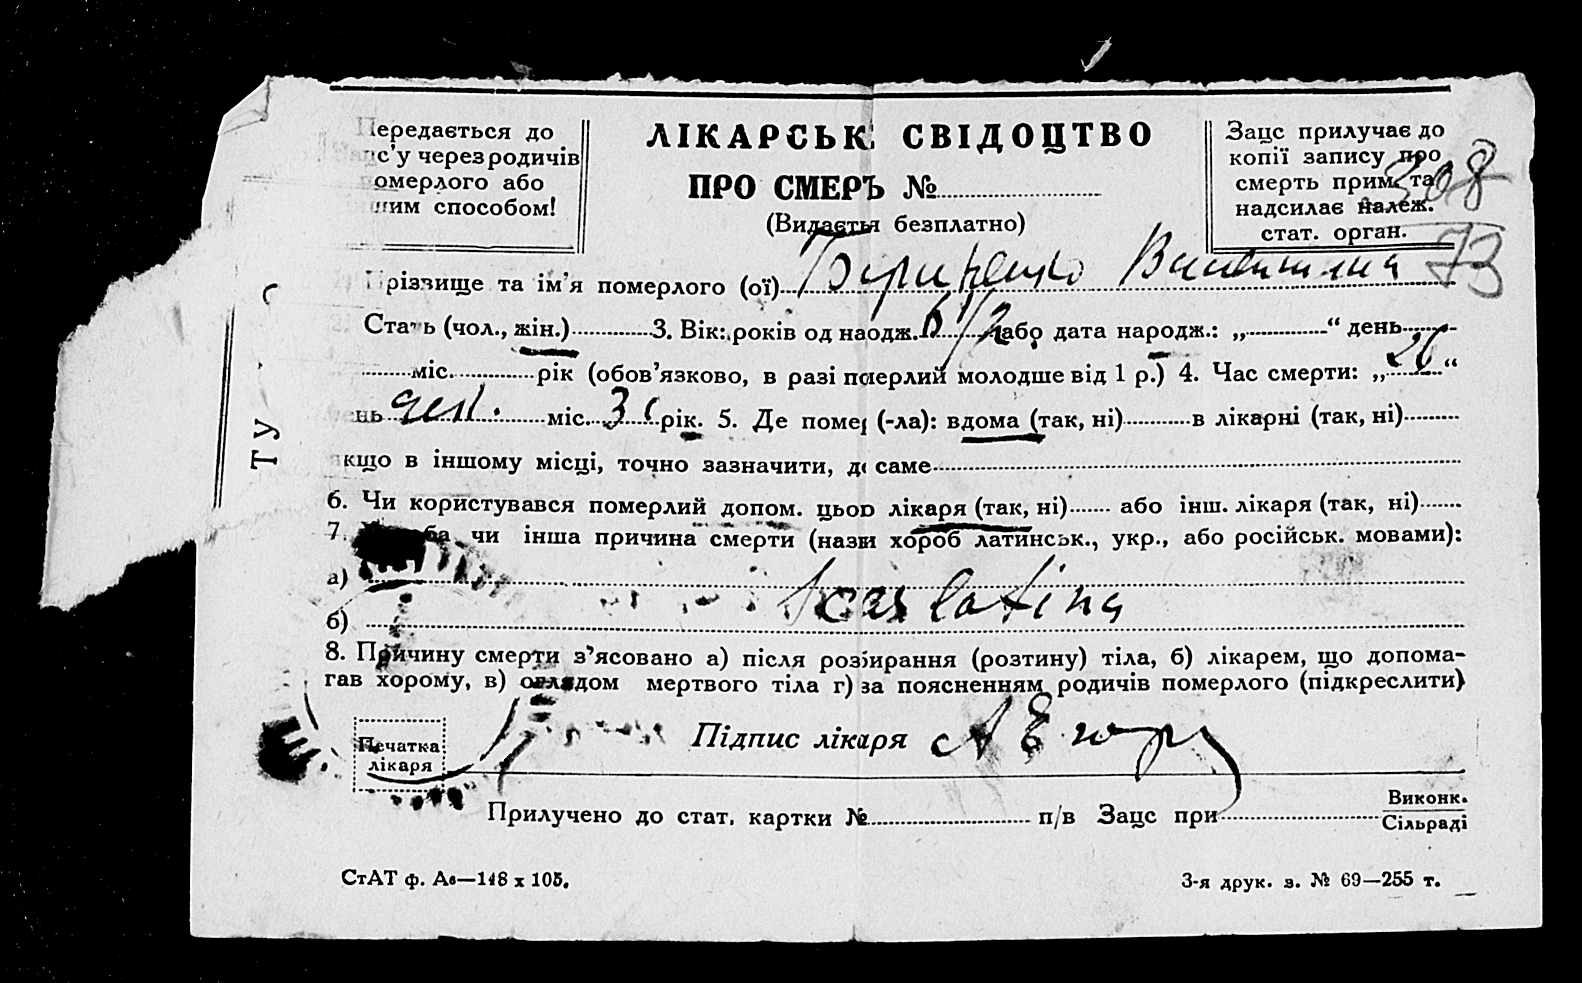 Передається до
Загс'у через родичів
померлого або
іншим способом!
ЛІКАРСЬК СВІДОЦТВО
ПРО СМЕРЪ №
(Видаєтья безплатно)
Загс прилучає до
копії запису про
смерть прим. та
надсилає належ.
стат. орган.
308
73
Прізвище та ім'я померлого (ої)
2. Стать (чол., жін.) 3. Вік: років од наодж. 6 1/2 або дата народж.: „ “ день
міс. рік (обов'язково, в разі пмерлий молодше від 1 р.) 4. Час смерти: „26“
день дек. міс. 31 рік. 5. Де помер (-ла): вдома (так, ні) в лікарні (так, ні)
якщо в іншому місці, точно зазначити, де саме
ТУ
6. Чи користувався померлий допом. цьоо лікаря (так, ні) або інш. лікаря (так, ні)
7. Хороба чи інша причина смерти (назви хороб латинськ., укр., або російськ. мовами):
а)
Scarlatina
б)
8. Причину смерти з'ясовано а) після розбирання (розтину) тіла, б) лікарем, що допома-
гав хорому, в) оглядом мертвого тіла г) за поясненням родичів померлого (підкреслити)
Печатка
лікаря
Підпис лікаря
Прилучено до стат. картки № п/в Загс при Виконк.
Сільраді
СтАТ ф. Ав—148 х 105.
3-я друк. з. № 69—255 т.